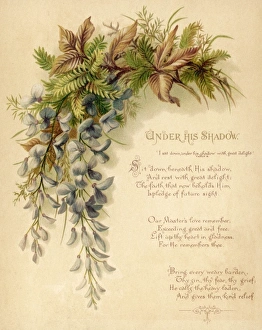 UNDER HIS SHADOW.
"I sat down under his shadow with great delight"
Sit down beneath His shadow,
And rest with great delight;
The faith that now beholds Him,
Is pledge of future sight
Our Master's love remember,
Exceeding great and free;
Lift up thy heart in gladness,
For He remembers thee.
Bring every weary burden,
Thy sin, thy fear, thy grief;
He calls the heavy laden,
And gives them kind relief